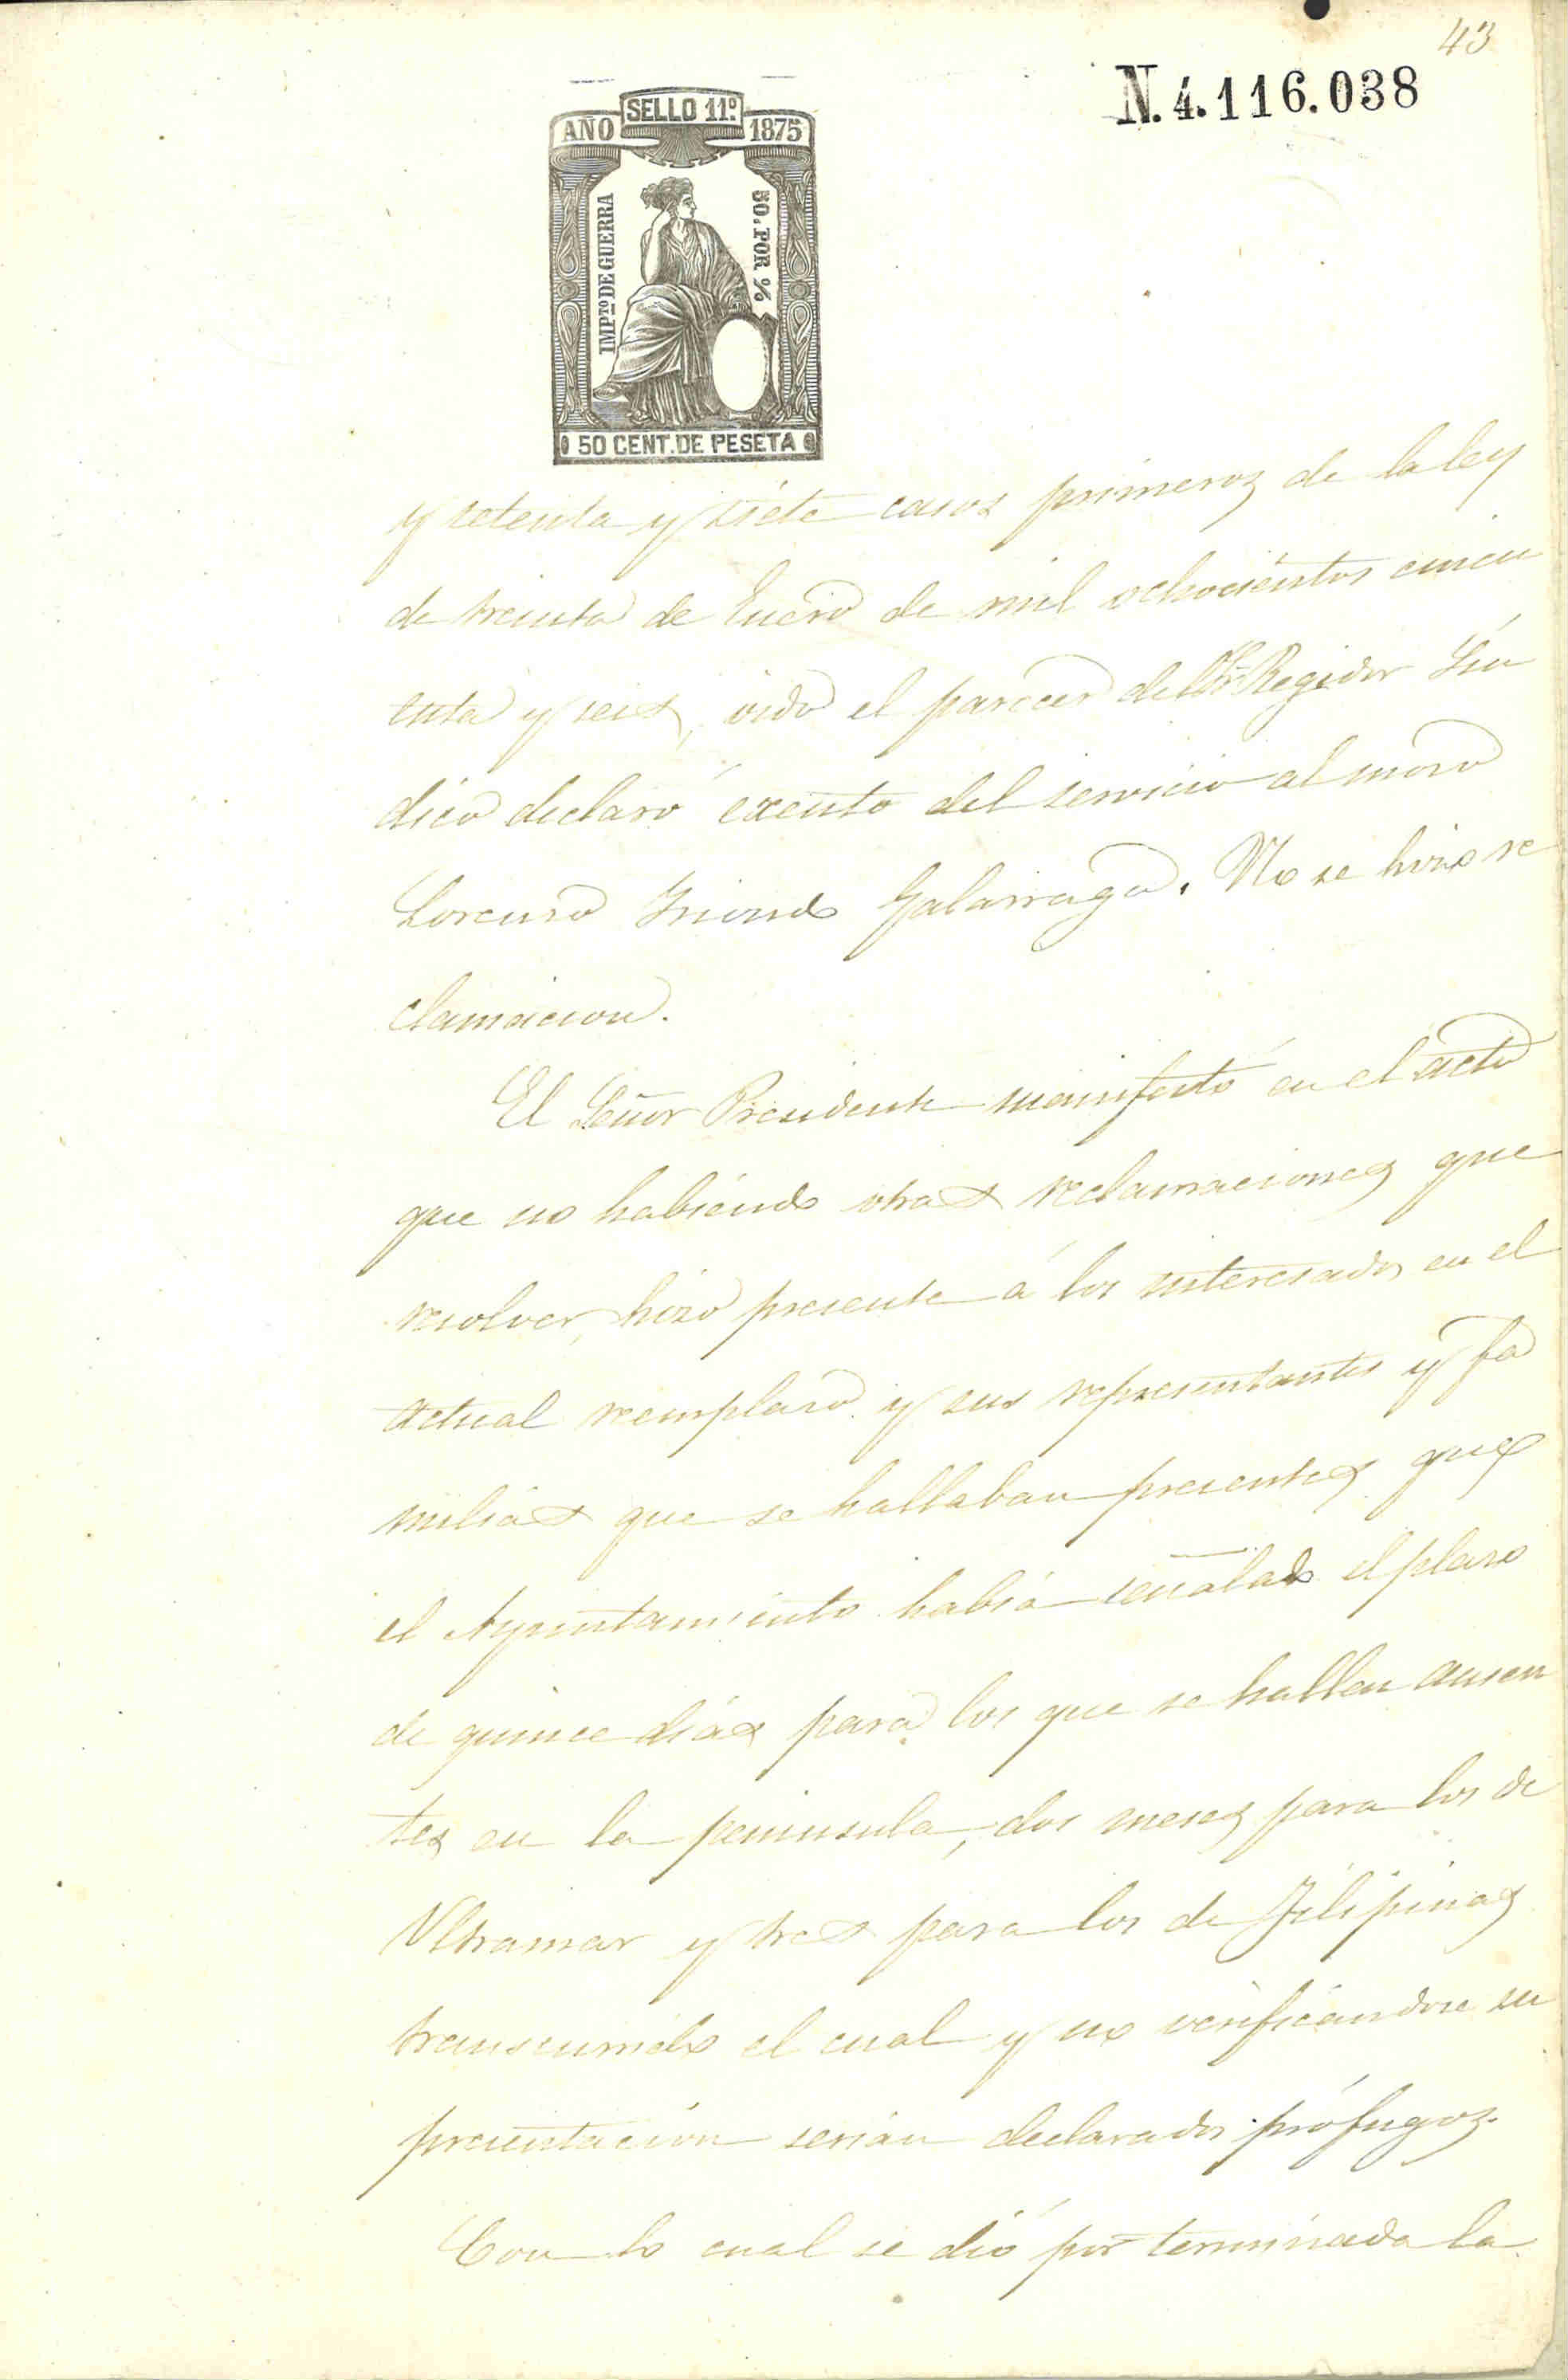 43
N. 4.116.038
SELLO 11º
AÑO 1875
IMPTO DE GUERRA
50. POR %
50 CENT. DE PESETA
y setenta y siete casos primeros de la ley
de treinta de Enero de mil ochocientos cincu
enta y seis, oido el parecer del Sr. Regidor Sín
dico declaró exento del servicio al moso
Lorenso Iriondo Galarraga. No se hiso re
clamacion.
El Señor Presidente manifestó en el acto
que no habiendo otras reclamaciones que
resolver, hiso presente á los interesados en el
actual reemplaso y sus representantes y fa
milias que se hallaban presentes que
el Ayuntamiento habia señalado el plaso
de quince dias para los que se hallen ausen
tes en la peninsula, dos meses para los de
Ultramar y tres para los de Filipinas
transcurrido el cual y no verificandose su
presentación serian declarados prófugos.
Con lo cual se dió por terminada la